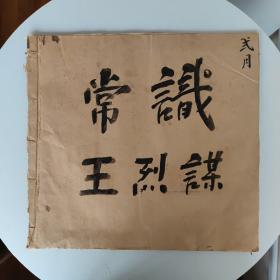 弍月
常識
王烈謀